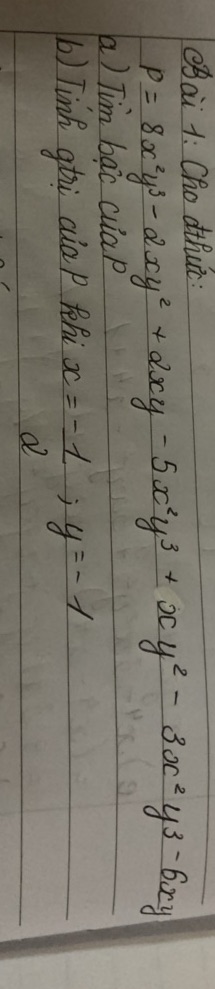 Bài 1: Cho đthức:
P = 8x²y³ - 2xy² + 2xy - 5x²y³ + xy² - 3x²y³ - 6xy
a) Tìm bậc của P
b) Tính gtrị của P khi x = -1/2 ; y = -1